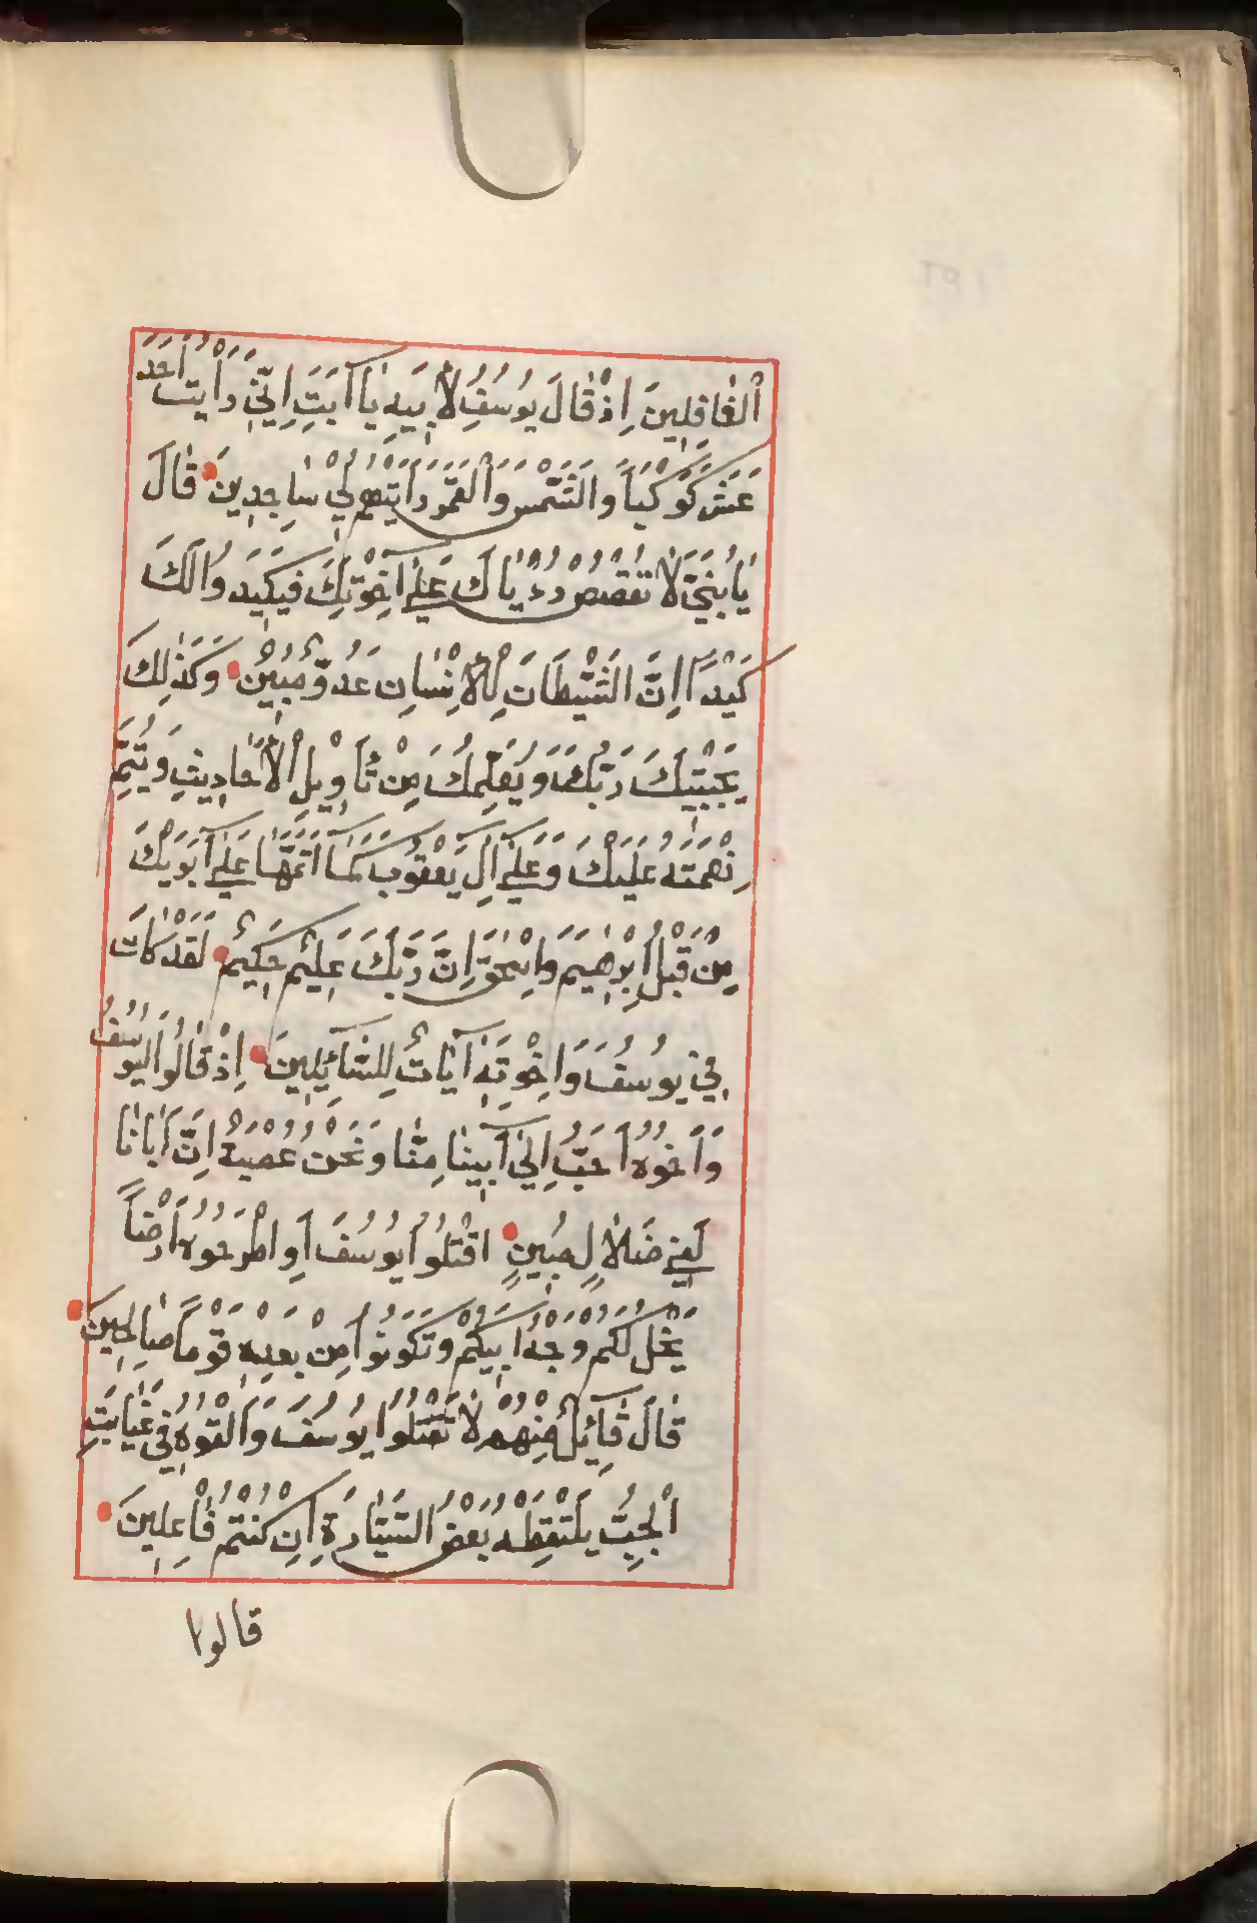 اَلْغَافِلِينَ اِذْ قَالَ يُوسُفُ لِأَبِيهِ يَا اَبَتِ اِنِّي رَأَيْتُ اَحَدَ
عَشَرَ كَوْكَبًا وَالشَّمْسَ وَالْقَمَرَ رَأَيْتُهُمْ لِي سَاجِدِينَ قَالَ
يَا بُنَيَّ لَا تَقْصُصْ رُؤْيَاكَ عَلَى اِخْوَتِكَ فَيَكِيدُوا لَكَ
كَيْدًا اِنَّ الشَّيْطَانَ لِلْاِنْسَانِ عَدُوٌّ مُبِينٌ وَكَذٰلِكَ
يَجْتَبِيكَ رَبُّكَ وَيُعَلِّمُكَ مِنْ تَأْوِيلِ الْأَحَادِيثِ وَيُتِمُّ
نِعْمَتَهُ عَلَيْكَ وَعَلَى اٰلِ يَعْقُوبَ كَمَا اَتَمَّهَا عَلَى اَبَوَيْكَ
مِنْ قَبْلُ اِبْرٰهِيمَ وَاِسْحٰقَ اِنَّ رَبَّكَ عَلِيمٌ حَكِيمٌ لَقَدْ كَانَ
فِي يُوسُفَ وَاِخْوَتِهِ اٰيَاتٌ لِلسَّائِلِينَ اِذْ قَالُوا لَيُوسُفُ
وَاَخُوهُ اَحَبُّ اِلَى اَبِينَا مِنَّا وَنَحْنُ عُصْبَةٌ اِنَّ اَبَانَا
لَفِي ضَلَالٍ مُبِينٍ اقْتُلُوا يُوسُفَ اَوِ اطْرَحُوهُ اَرْضًا
يَخْلُ لَكُمْ وَجْهُ اَبِيكُمْ وَتَكُونُوا مِنْ بَعْدِهِ قَوْمًا صَالِحِينَ
قَالَ قَائِلٌ مِنْهُمْ لَا تَقْتُلُوا يُوسُفَ وَاَلْقُوهُ فِي غَيَابَتِ
الْجُبِّ يَلْتَقِطْهُ بَعْضُ السَّيَّارَةِ اِنْ كُنْتُمْ فَاعِلِينَ
قالوا